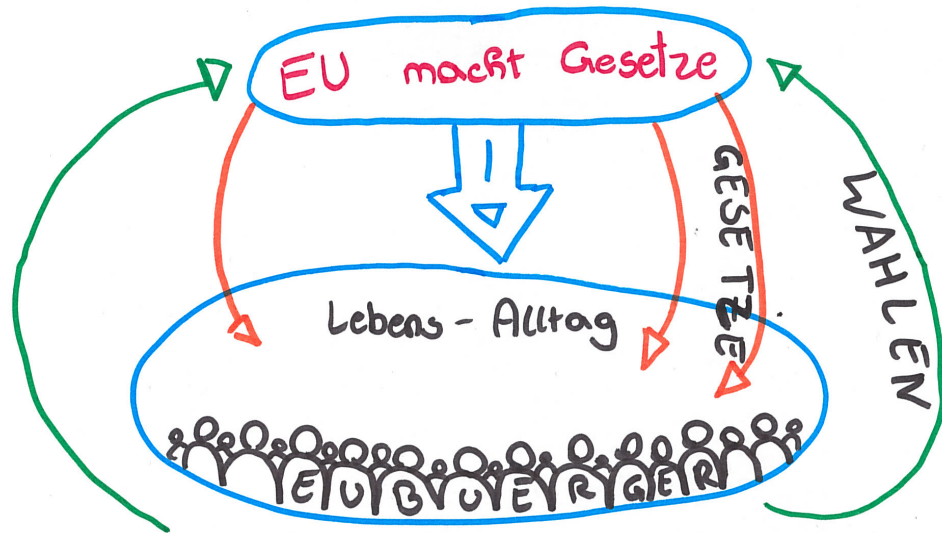 EU macht Gesetze
GESETZE
WAHLEN
Lebens-Alltag
EU BUERGER